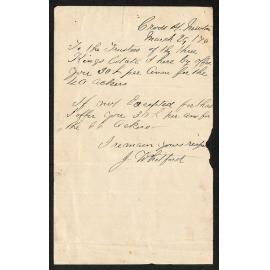 Cross St. Newton
March 29, 18
To the Trustees of the three
Kings Estate I here by offer
you 30 £ per annum for the
40 Ackers
If not Excepted for this
I offer you 30 £ per ann for
the 66 Ackers
I remain yours resp
J. Whitford